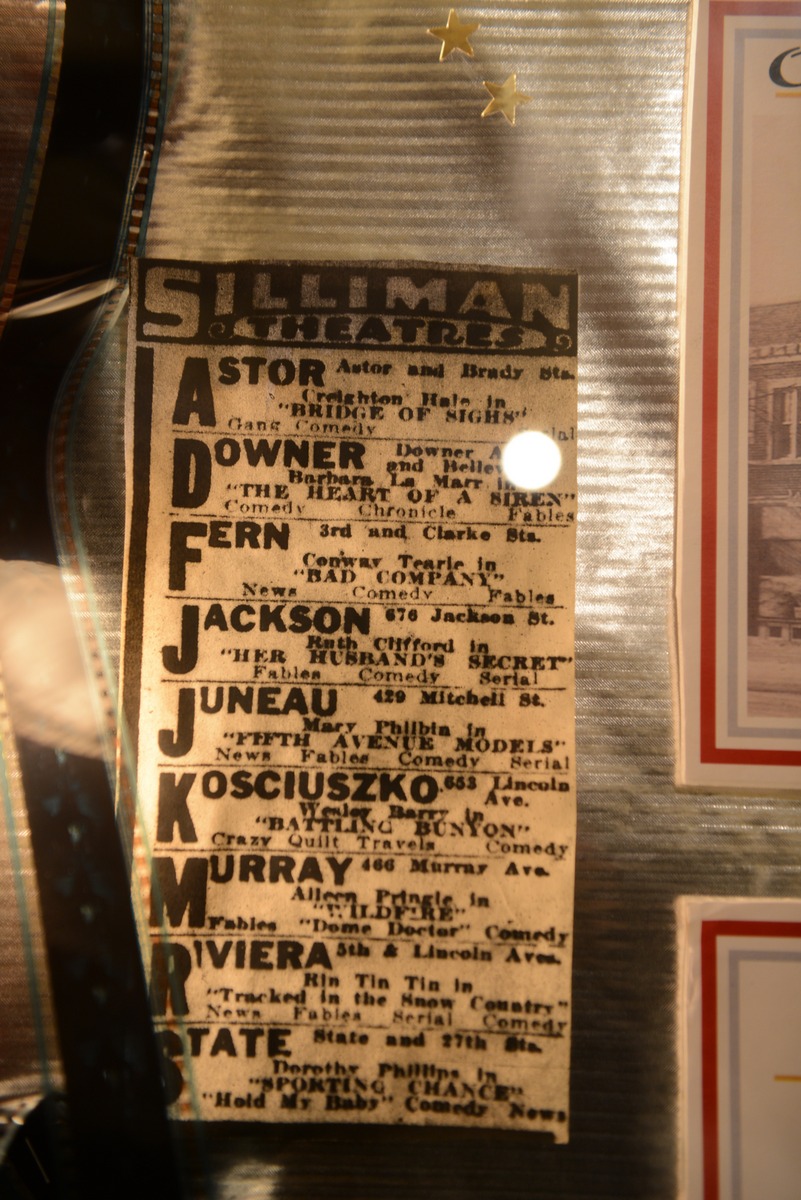 SILLIMAN
THEATRES
ASTOR Astor and Brady Sts.
Creighton Hale in
"BRIDGE OF SIGHS"
Gang Comedy
DOWNER Downer
and
Barbara La Marr in
"THE HEART OF A SIREN"
Comedy Chronicle Fables
FERN 3rd and Clarke Sts.
Conway Tearle in
"BAD COMPANY"
News Comedy Fables
JACKSON 676 Jackson St.
Ruth Clifford in
"HER HUSBAND'S SECRET"
Fables Comedy Serial
JUNEAU 429 Mitchell St.
Mary Philbin in
"FIFTH AVENUE MODELS"
News Fables Comedy Serial
KOSCIUSZKO 653 Lincoln
Ave.
Wesley Barry in
"BATTLING BUNYON"
Crazy Quilt Travels Comedy
MURRAY 466 Murray Ave.
Aileen Pringle in
"WILDFIRE"
Fables "Dome Doctor" Comedy
RIVIERA 5th & Lincoln Aves.
Rin Tin Tin in
"Tracked in the Snow Country"
News Fables Serial Comedy
STATE State and 27th Sts.
Dorothy Phillips in
"SPORTING CHANCE"
"Hold My Baby" Comedy News